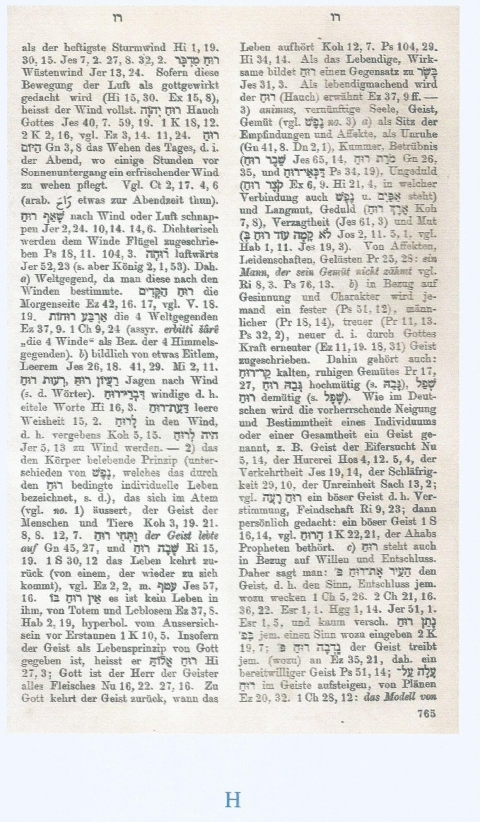 רו
רו
als der heftigste Sturmwind Hi 1, 19.
30, 15. Jes 7, 2. 27, 8. 32, 2. רוּחַ מִדְבָּר
Wüstenwind Jer 13, 24. Sofern diese
Bewegung der Luft als gottgewirkt
gedacht wird (Hi 15, 30. Ex 15, 8),
heisst der Wind vollst. רוּחַ יְהוָה Hauch
Gottes Jes 40, 7. 59, 19. 1 K 18, 12.
2 K 2, 16, vgl. Ez 3, 14. 11, 24. רוּחַ
הַיּוֹם Gn 3, 8 das Wehen des Tages, d. i.
der Abend, wo einige Stunden vor
Sonnenuntergang ein erfrischender Wind
zu wehen pflegt. Vgl. Ct 2, 17. 4, 6
(arab. etwas zur Abendzeit thun).
שָׁאַף רוּחַ nach Wind oder Luft schnap-
pen Jer 2, 24. 10, 14. 14, 6. Dichterisch
werden dem Winde Flügel zugeschrie-
ben Ps 18, 11. 104, 3. לְרוּחָה luftwärts
Jer 52, 23 (s. aber König 2, 1, 53). Dah.
a) Weltgegend, da man diese nach den
Winden bestimmte. רוּחַ הַקָּדִים die
Morgenseite Ez 42, 16. 17, vgl. V. 18.
19. אַרְבַּע רוּחוֹת die 4 Weltgegenden
Ez 37, 9. 1 Ch 9, 24 (assyr. erbitti šârê
„die 4 Winde“ als Bez. der 4 Himmels-
gegenden). b) bildlich von etwas Eitlem,
Leerem Jes 26, 18. 41, 29. Mi 2, 11.
רַעְיוֹן רוּחַ, רְעוּת רוּחַ Jagen nach Wind
(s. d. Wörter). דִּבְרֵי־רוּחַ windige d. h.
eitele Worte Hi 16, 3. דַּעַת־רוּחַ leere
Weisheit 15, 2. לְרוּחַ in den Wind,
d. h. vergebens Koh 5, 15. הָיָה לְרוּחַ
Jer 5, 13 zu Wind werden. — 2) das
den Körper belebende Prinzip (unter-
schieden von נֶפֶשׁ, welches das durch
den רוּחַ bedingte individuelle Leben
bezeichnet, s. d.), das sich im Atem
(vgl. no. 1) äussert, der Geist der
Menschen und Tiere Koh 3, 19. 21.
8, 8. 12, 7. וַתְּחִי רוּחַ der Geist lebte
auf Gn 45, 27, und שָׁבָה רוּחַ Ri 15,
19. 1 S 30, 12 das Leben kehrt zu-
rück (von einem, der wieder zu sich
kommt), vgl. Ez 2, 2, m. עטף Jes 57,
16. אֵין רוּחַ בּוֹ es ist kein Leben in
ihm, von Totem und Leblosem Ez 37, 8.
Hab 2, 19, hyperbol. vom Aussersich-
sein vor Erstaunen 1 K 10, 5. Insofern
der Geist als Lebensprinzip von Gott
gegeben ist, heisst er רוּחַ אֱלוֹהַּ Hi
27, 3; Gott ist der Herr der Geister
alles Fleisches Nu 16, 22. 27, 16. Zu
Gott kehrt der Geist zurück, wann das
Leben aufhört Koh 12, 7. Ps 104, 29.
Hi 34, 14. Als das Lebendige, Wirk-
same bildet רוּחַ einen Gegensatz zu בָּשָׂר
Jes 31, 3. Als lebendigmachend wird
der רוּחַ (Hauch) erwähnt Ez 37, 9 ff. —
3) animus, vernünftige Seele, Geist,
Gemüt (vgl. נֶפֶשׁ no. 3) a) als Sitz der
Empfindungen und Affekte, als Unruhe
(Gn 41, 8. Dn 2, 1), Kummer, Betrübnis
(שֶׁבֶר רוּחַ Jes 65, 14, מֹרַת רוּחַ Gn 26,
35, und דַּכְּאֵי־רוּחַ Ps 34, 19), Ungeduld
(קֹצֶר רוּחַ Ex 6, 9. Hi 21, 4, in welcher
Verbindung auch נֶפֶשׁ u. אַפַּיִם steht)
und Langmut, Geduld (אֶרֶךְ רוּחַ Koh
7, 8), Verzagtheit (Jes 61, 3) und Mut
(לֹא קָמָה עוֹד רוּחַ בְּ Jos 2, 11. 5, 1. vgl.
Hab 1, 11. Jes 19, 3). Von Affekten,
Leidenschaften, Gelüsten Pr 25, 28: ein
Mann, der sein Gemüt nicht zähmt vgl.
Ri 8, 3. Ps 76, 13. b) in Bezug auf
Gesinnung und Charakter wird je-
mand ein fester (Ps 51, 12), männ-
licher (Pr 18, 14), treuer (Pr 11, 13.
Ps 32, 2), neuer d. i. durch Gottes
Kraft erneuter (Ez 11, 19. 18, 31) Geist
zugeschrieben. Dahin gehört auch:
קַר־רוּחַ kalten, ruhigen Gemütes Pr 17,
27, גְּבַהּ רוּחַ hochmütig (s. גָּבֵהַּ), שְׁפַל
רוּחַ demütig (s. שָׁפָל). Wie im Deut-
schen wird die vorherrschende Neigung
und Bestimmtheit eines Individuums
oder einer Gesamtheit ein Geist ge-
nannt, z. B. Geist der Eifersucht Nu
5, 14, der Hurerei Hos 4, 12. 5, 4, der
Verkehrtheit Jes 19, 14, der Schläfrig-
keit 29, 10, der Unreinheit Sach 13, 2;
vgl. רוּחַ רָעָה ein böser Geist d. h. Ver-
stimmung, Feindschaft Ri 9, 23; dann
persönlich gedacht: ein böser Geist 1 S
16, 14, vgl. הָרוּחַ 1 K 22, 21, der Ahabs
Propheten bethört. c) רוּחַ steht auch
in Bezug auf Willen und Entschluss.
Daher sagt man: הֵעִיר אֶת־רוּחַ פּ׳ den
Geist, d. h. den Sinn, Entschluss jem.
wozu wecken 1 Ch 5, 26. 2 Ch 21, 16.
36, 22. Esr 1, 1. Hgg 1, 14. Jer 51, 1.
Esr 1, 5, und kaum versch. נָתַן רוּחַ
בְּפ׳ jem. einen Sinn wozu eingeben 2 K
19, 7; נָדְבָה רוּחַ פּ׳ der Geist treibt
jem. (wozu) an Ex 35, 21, dah. ein
bereitwilliger Geist Ps 51, 14; עָלָה עַל־
רוּחַ im Geiste aufsteigen, von Plänen
Ez 20, 32. 1 Ch 28, 12: das Modell von
765
H